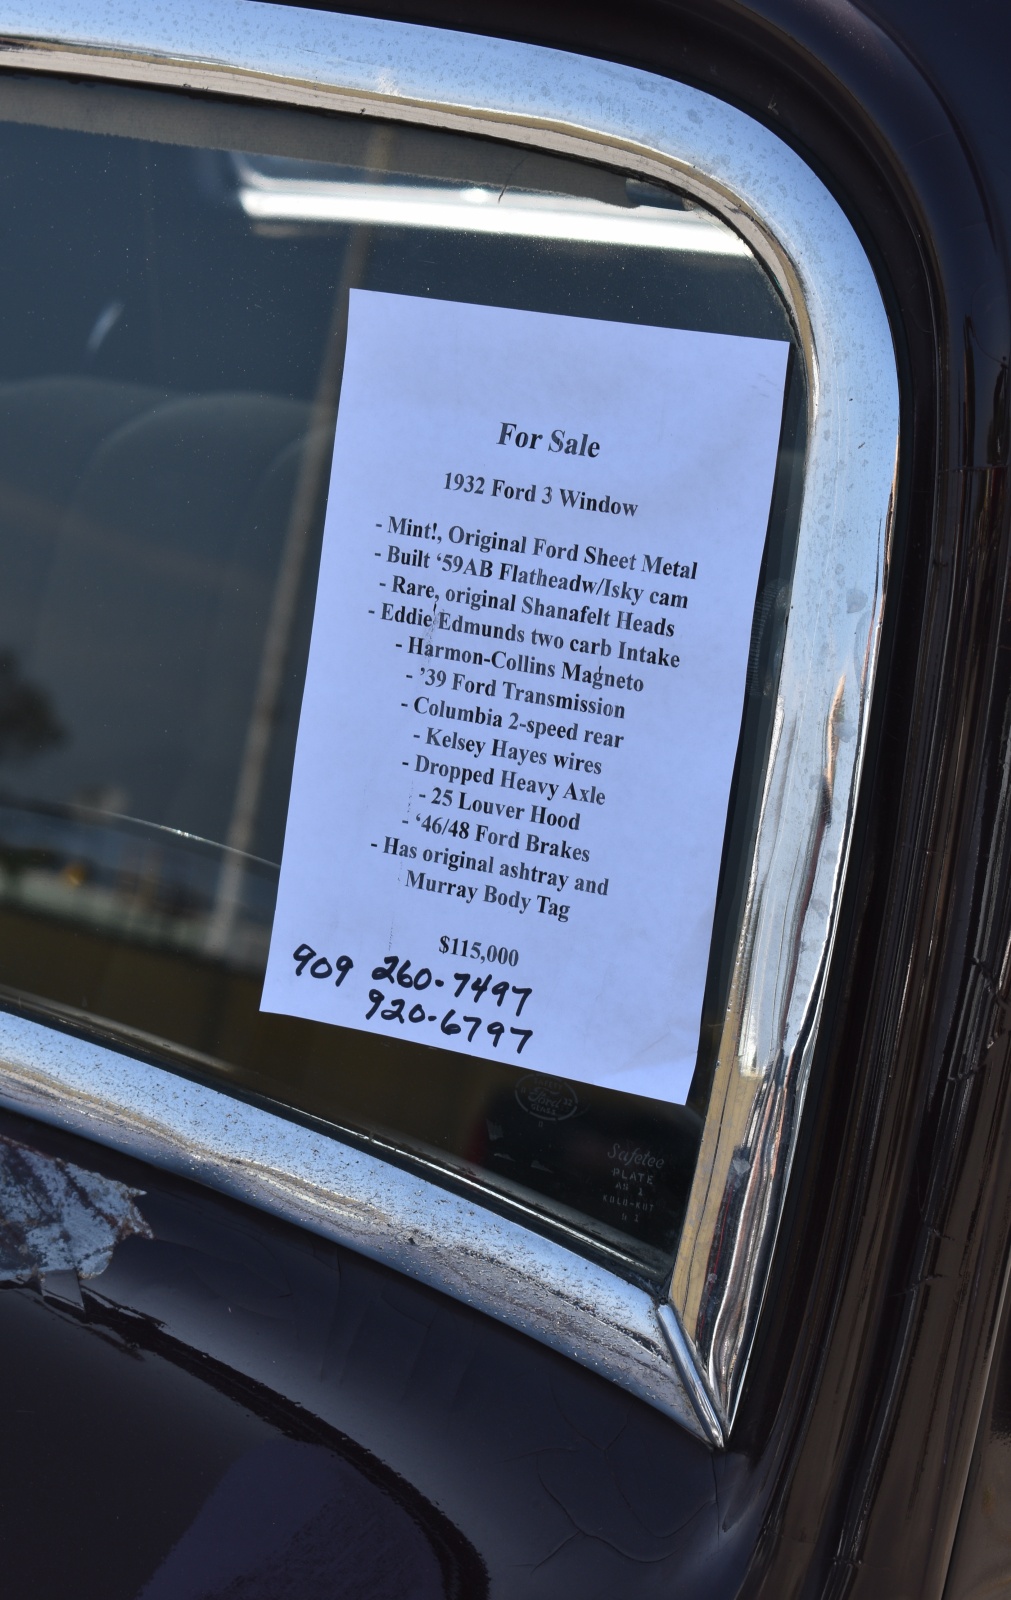 For Sale
1932 Ford 3 Window
- Mint!, Original Ford Sheet Metal
- Built ‘59AB Flatheadw/Isky cam
- Rare, original Shanafelt Heads
- Eddie Edmunds two carb Intake
- Harmon-Collins Magneto
- ’39 Ford Transmission
- Columbia 2-speed rear
- Kelsey Hayes wires
- Dropped Heavy Axle
- 25 Louver Hood
- ‘46/48 Ford Brakes
- Has original ashtray and
Murray Body Tag
$115,000
909 260-7497
920-6797
Ford
GLASS
Safetee
PLATE